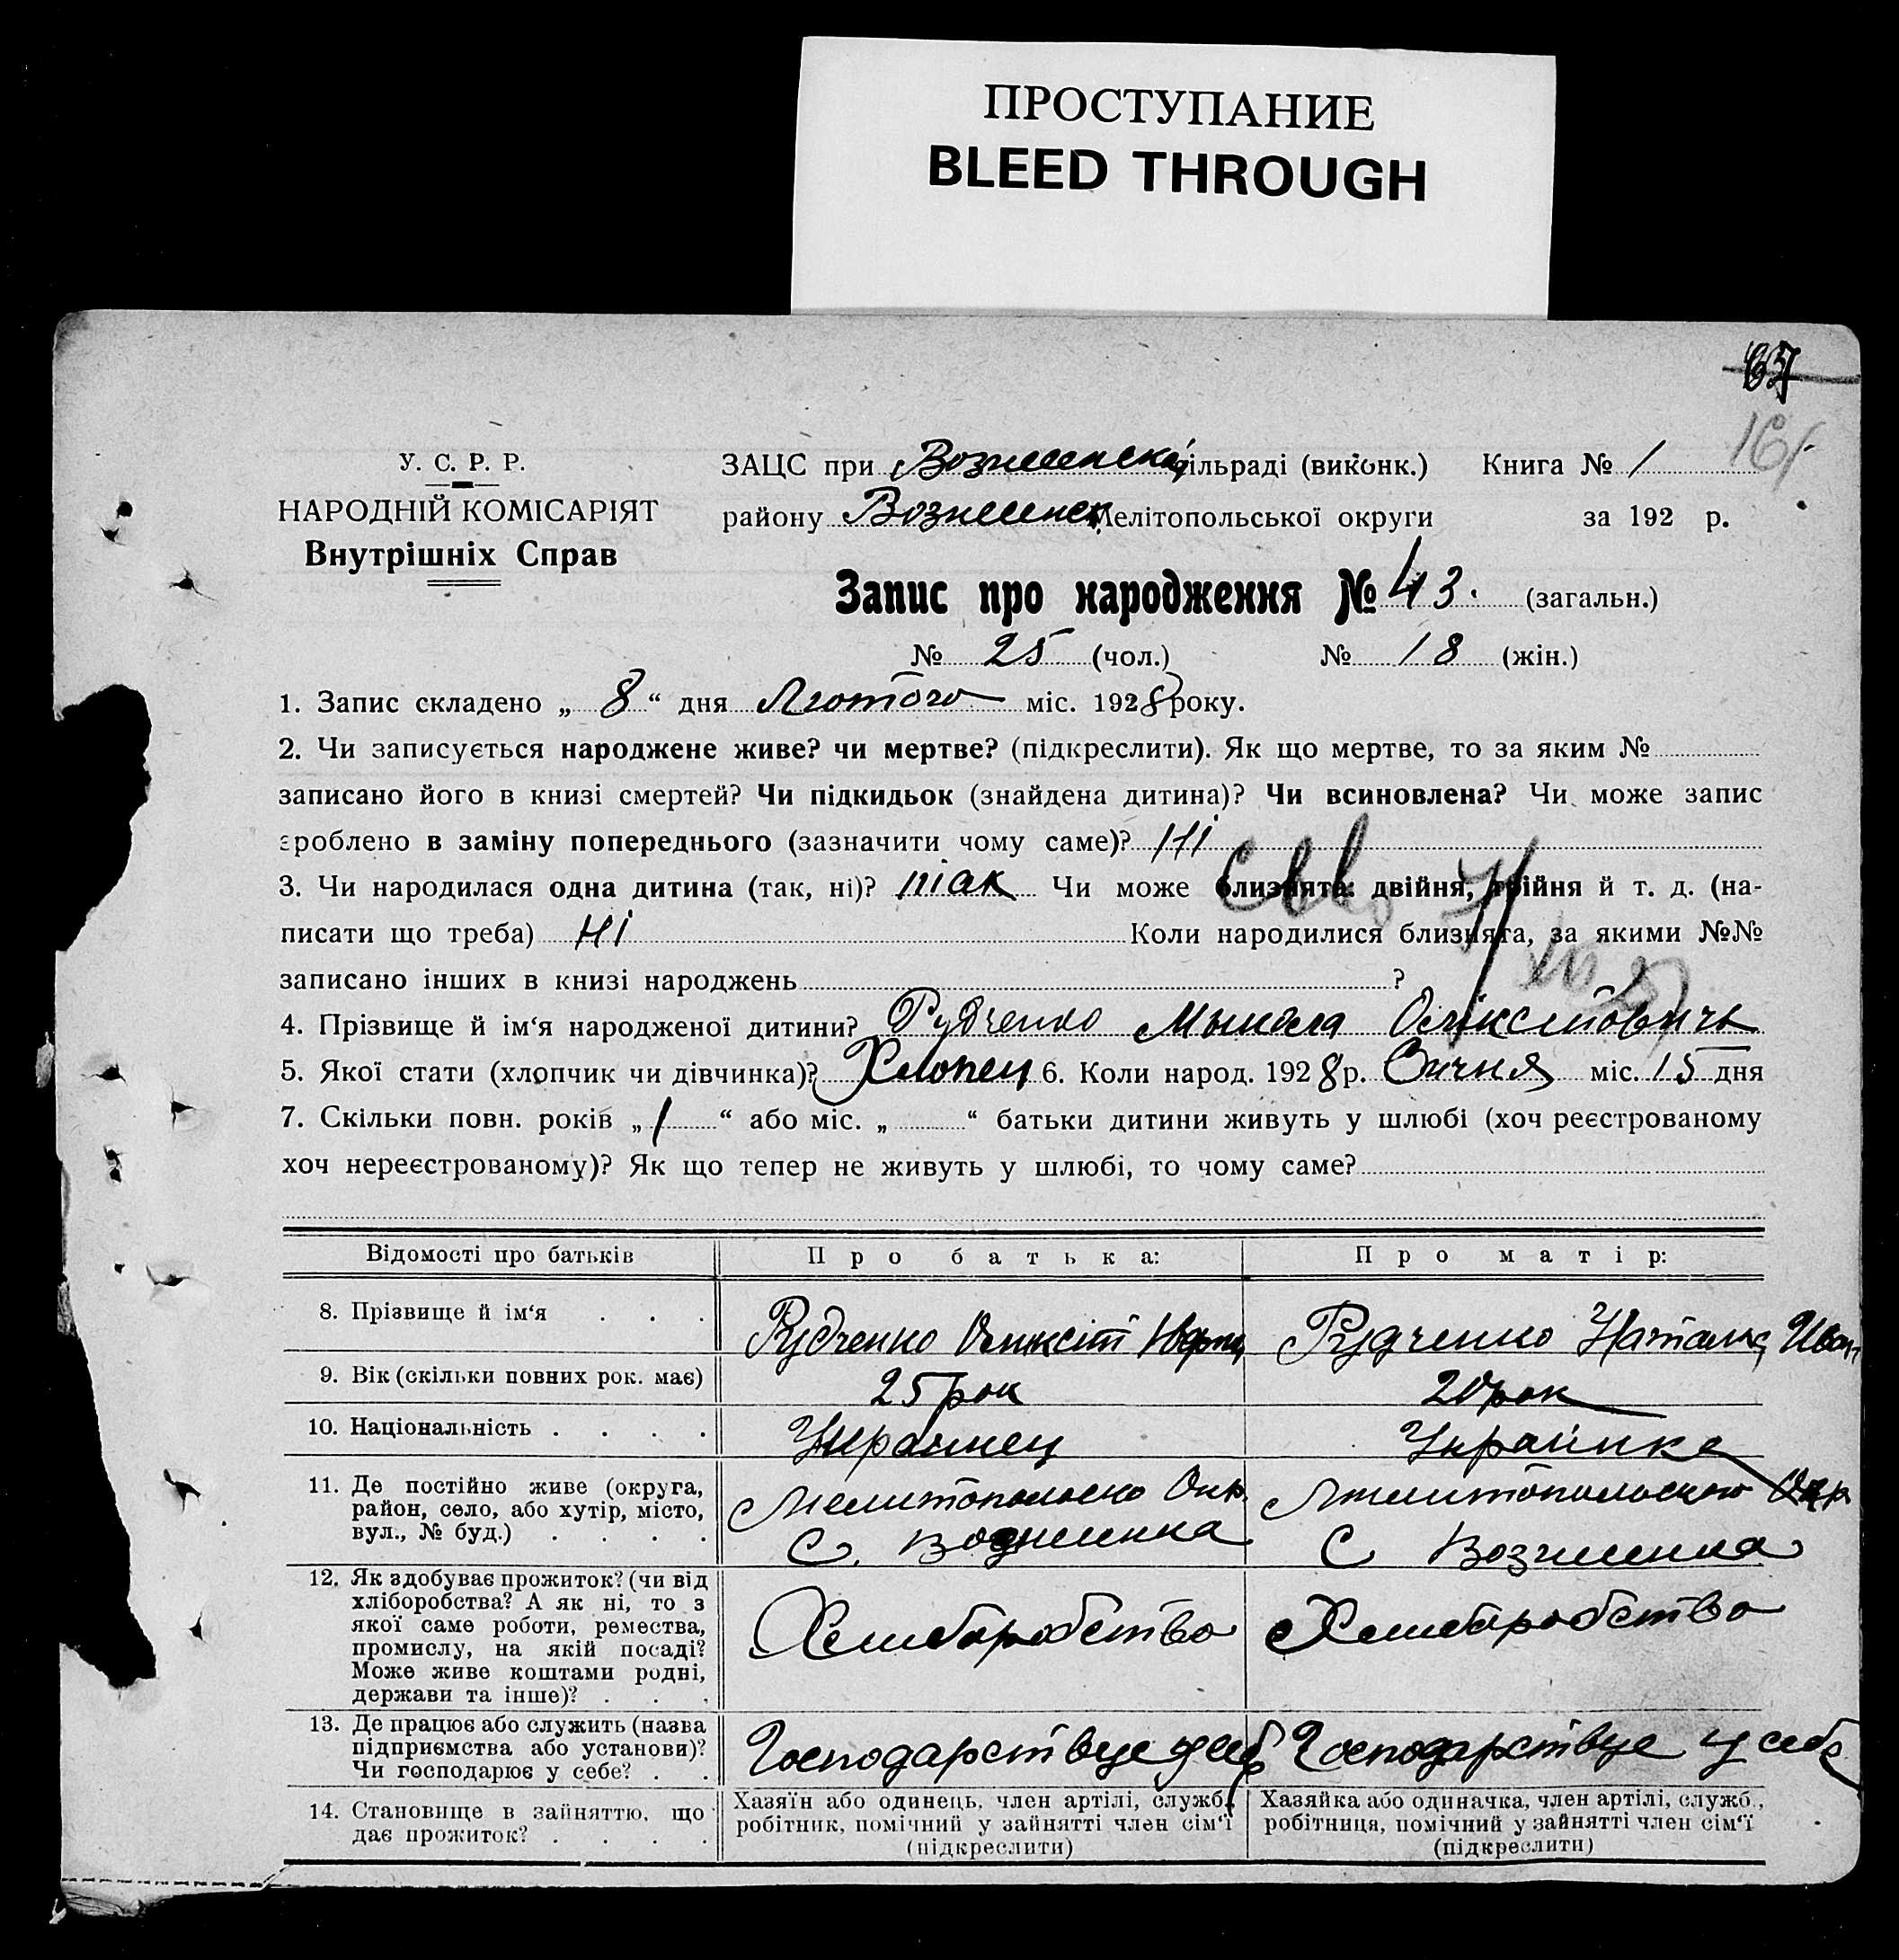 ПРОСТУПАНИЕ
BLEED THROUGH
67
161
У. С. Р. Р.
НАРОДНІЙ КОМІСАРІЯТ
Внутрішніх Справ
ЗАЦС при Вознесенській сільраді (виконк.) Книга № 1
району Вознесенск Мелітопольської округи за 192 р.
Запис про народження № 43. (загальн.)
№ 25 (чол.) № 18 (жін.)
1. Запис складено „ 8 “ дня Лютого міс. 1928 року.
2. Чи записується народжене живе? чи мертве? (підкреслити). Як що мертве, то за яким №
записано його в книзі смертей? Чи підкидьок (знайдена дитина)? Чи всиновлена? Чи може запис
зроблено в заміну попереднього (зазначити чому саме)? Ні
3. Чи народилася одна дитина (так, ні)? так Чи може близнята: двійня, трійня й т. д. (на-
писати що треба) Ні Коли народилися близнята, за якими №№
записано інших в книзі народжень ?
4. Прізвище й ім‘я народженої дитини? Рудченко Мыкола
5. Якої стати (хлопчик чи дівчинка)? Хлопец 6. Коли народ. 1928 р. Сичня міс. 15 дня
7. Скільки повн. років „ 1 “ або міс. „ “ батьки дитини живуть у шлюбі (хоч реєстрованому
хоч нереєстрованому)? Як що тепер не живуть у шлюбі, то чому саме?
Відомості про батьків Про батька: Про матір:
8. Прізвище й ім‘я . . . Рудченко Рудченко Наталка Иван
9. Вік (скільки повних рок. має) 25 рок 20 рок
10. Національність . . . . Украинец Украинка
11. Де постійно живе (округа,
район, село, або хутір, місто,
вул., № буд.) . . . .
Мелитопольско Окр
С. Вознесенка
Мелитопольского Окр
С Вознесенка
12. Як здобуває прожиток? (чи від
хліборобства? А як ні, то з
якої саме роботи, ремества,
промислу, на якій посаді?
Може живе коштами родні,
держави та інше)? . . .
Хлиборобство Хлиборобство
13. Де працює або служить (назва
підприємства або установи)?
Чи господарює у себе? . .
Господарствуе у себ Господарствуе у себе
14. Становище в зайняттю, що
дає прожиток? . . . .
Хазяїн або одинець, член артілі, служб.,
робітник, помічний у зайнятті член сім‘ї
(підкреслити)
Хазяйка або одиначка, член артілі, служб.,
робітниця, помічний у зайнятті член сім‘ї
(підкреслити)